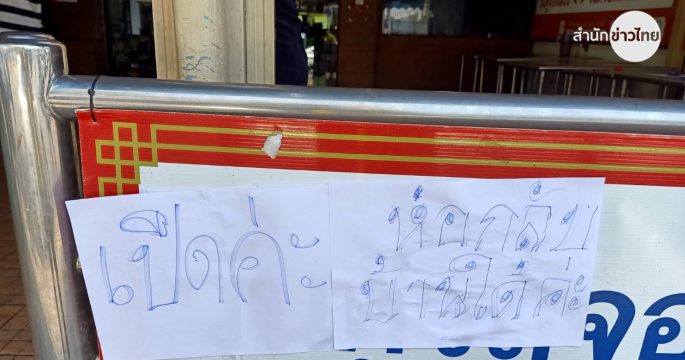 สำนักข่าวไทย
เปิดค่ะ
ห่อกลับ
บ้านได้ค่ะ
จอ